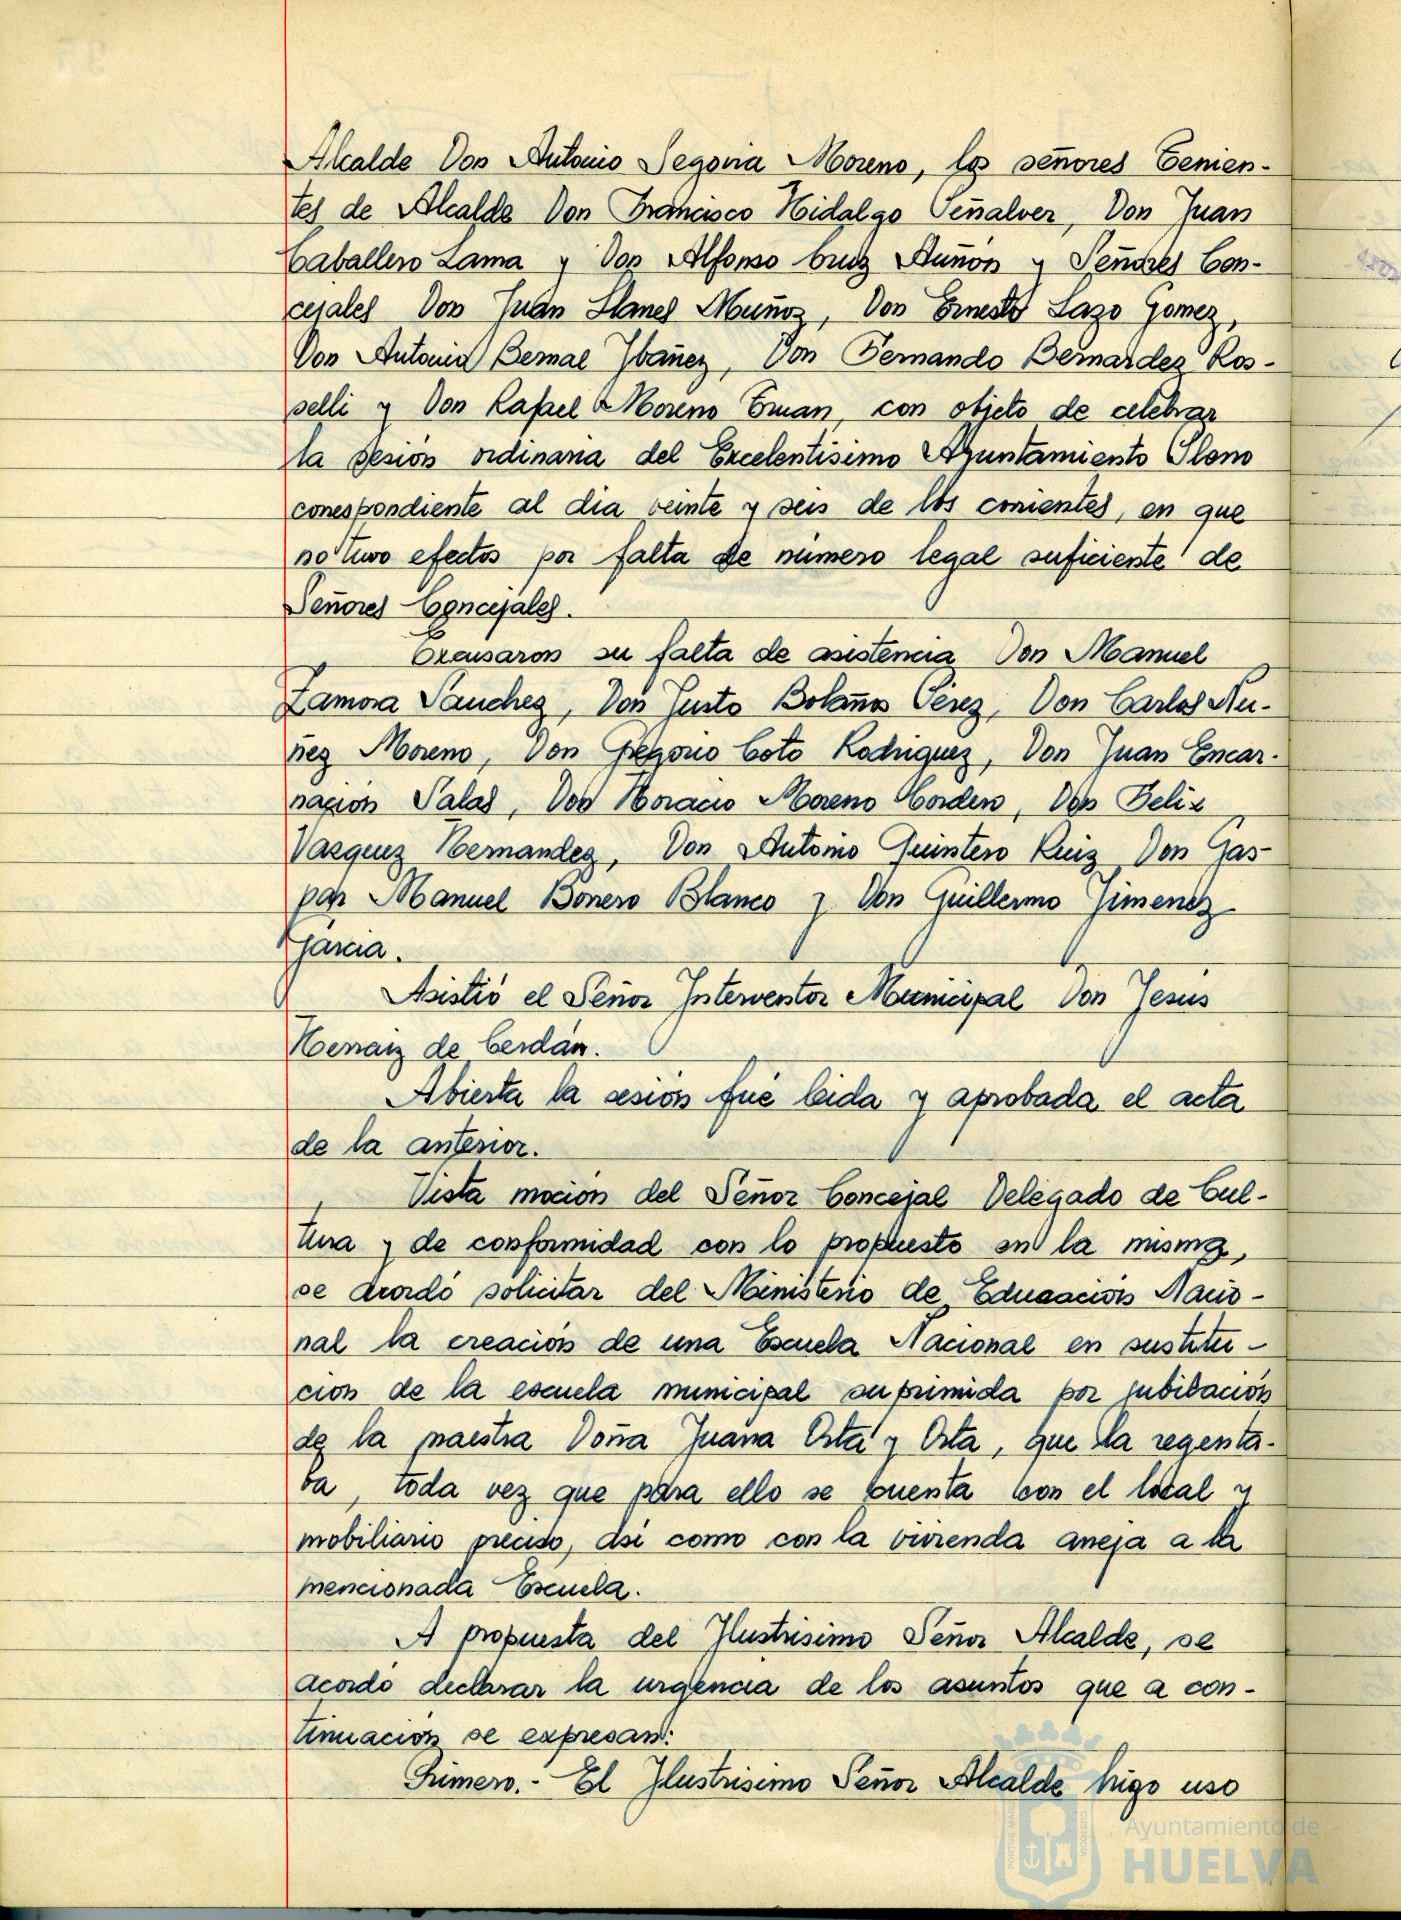 Alcalde Don Antonio Segovia Moreno, los señores Tenien-
tes de Alcalde Don Francisco Hidalgo Peñalver, Don Juan
Caballero Lama y Don Alfonso Cruz Auñón y Señores Con-
cejales Don Juan Llanes Muñoz, Don Ernesto Lazo Gomez,
Don Antonio Bernal Ybañez, Don Fernando Bernardez Ros-
selli y Don Rafael Moreno con objeto de celebrar
la sesión ordinaria del Excelentísimo Ayuntamiento Pleno
correspondiente al dia veinte y seis de los corrientes, en que
no tuvo efectos por falta de número legal suficiente de
Señores Concejales.
Excusaron su falta de asistencia Don Manuel
Zamora Sanchez, Don Justo Bolaños Pérez, Don Carlos Nu-
ñez Moreno, Don Gregorio Coto Rodriguez, Don Juan Encar-
nación Salas, Don Horacio Moreno Cordero, Don Felix
Vazquez Hernandez, Don Antonio Quintero Ruiz Don Gas-
par Manuel Borrero Blanco y Don Guillermo Jimenez
Garcia.
Asistió el Señor Interventor Municipal Don Jesús
Herraiz de Cerdán.
Abierta la sesión fué leida y aprobada el acta
de la anterior.
Vista moción del Señor Concejal Delegado de Cul-
tura y de conformidad con lo propuesto en la misma,
se acordó solicitar del Ministerio de Educación Nacio-
nal la creación de una Escuela Nacional en sustitu-
cion de la escuela municipal suprimida por jubilación
de la maestra Doña Juana Orta y Orta, que la regenta-
ba, toda vez que para ello se cuenta con el local y
mobiliario preciso, así como con la vivienda aneja a la
mencionada Escuela.
A propuesta del Ylustrisimo Señor Alcalde, se
acordó declarar la urgencia de los asuntos que a con-
tinuación se expresan:
Primero.- El Ylustrisimo Señor Alcalde hizo uso
Ayuntamiento de
HUELVA